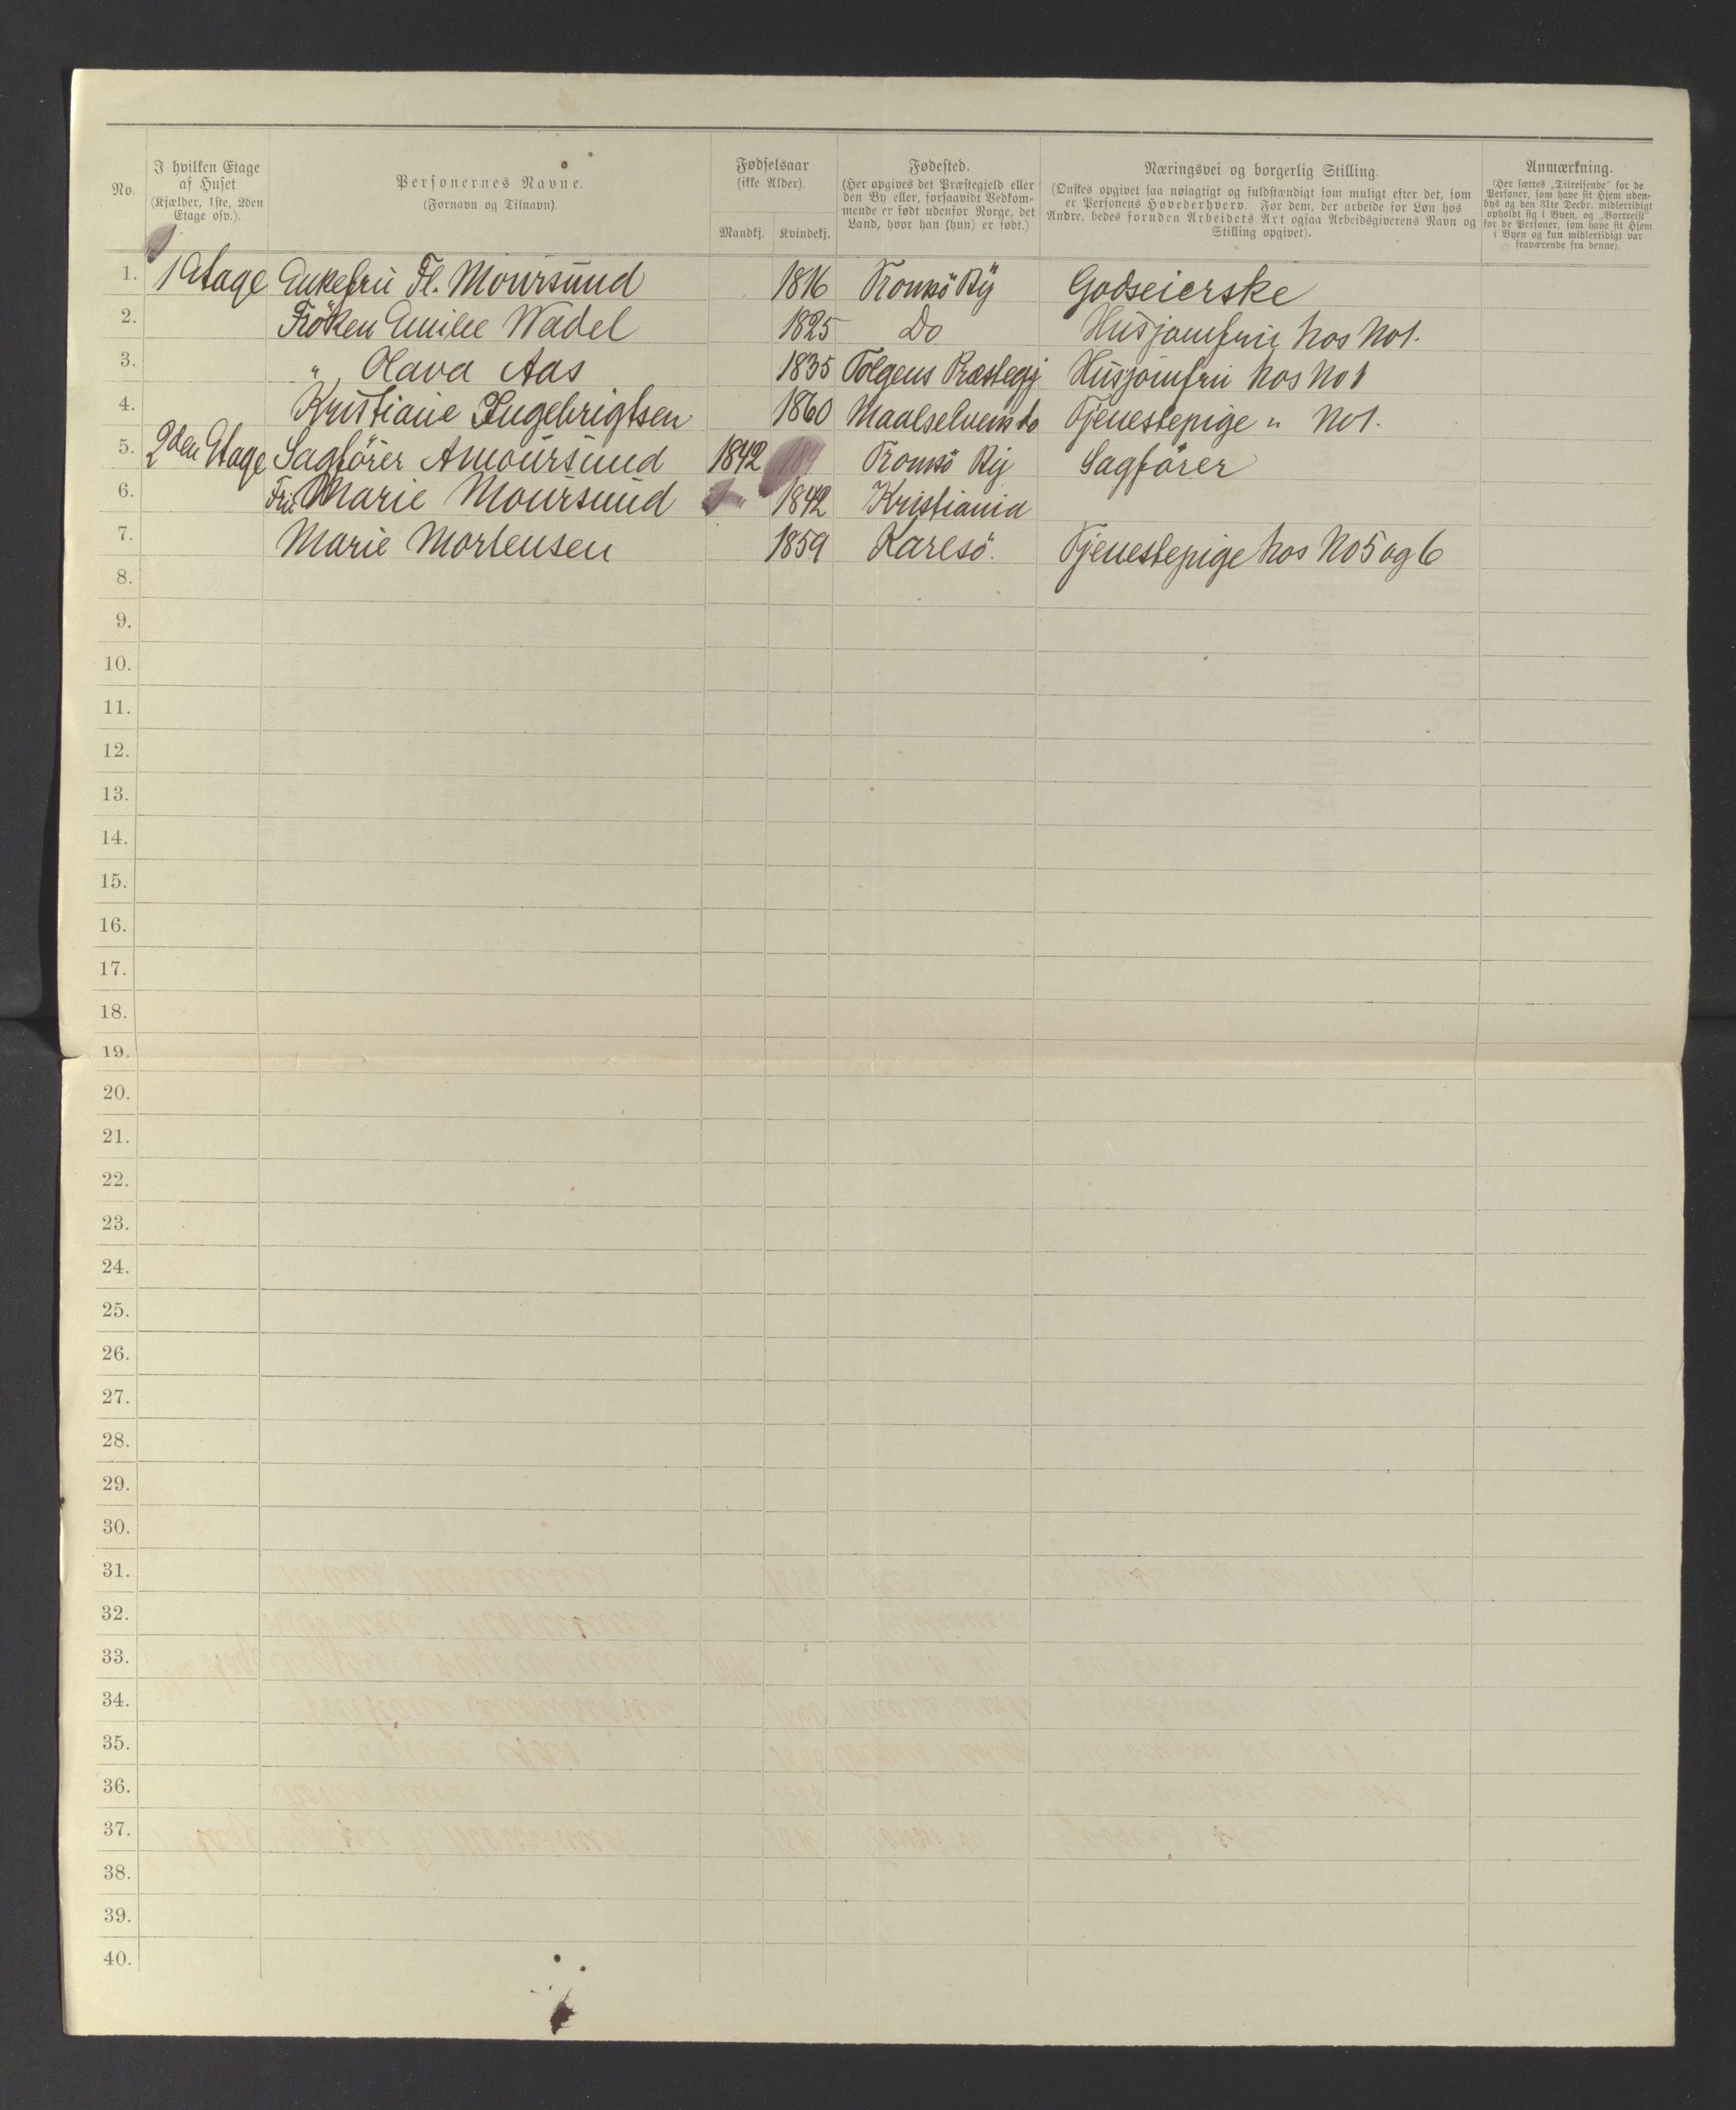 No.
I hvilken Etage af Huset (Kjælder, 1ste, 2den Etage osv.).
Personernes Navne. (Fornavn og Tilnavn).
Fødselsaar (ikke Alder).
Mandkj. Kvindekj.
Fødested. (Her opgives det Præstegjeld eller den By eller, forsaavidt Vedkommende er født udenfor Norge, det Land, hvor han (hun) er født.)
Næringsvei og borgerlig Stilling. (Ønskes opgivet saa nøiagtigt og fuldstændigt som muligt efter det, som er Personens Hovederhverv. For dem, der arbeide for Løn hos Andre, bedes foruden Arbeidets Art ogsaa Arbeidsgiverens Navn og Stilling opgivet).
Anmærkning. (Her sættes „Tilreisende" for de Personer, som have sit Hjem udenbys og den 31te Decbr. midlertidigt opholdt sig i Byen, og „Bortreist" for de Personer, som have sit Hjem i Byen og kun midlertidigt var fraværende fra denne).
1. 1 Etage Enkefru Fl. Moursund 1816 Tromsö By Godseierske
2. Fröken Emilie Wadel 1825 Do Husjomfru hos No1.
3. " Olava Aas 1835 Tolgens Præstegj Husjomfru hos No 1
4. Kristiane Ingebrigtsen 1860 Maalselvens do Tjenestepige " No1.
5. 2den Etage Sagförer A Moursund 1842 184 Tromsö By Sagförer
6. Fru Marie Moursund 1842 Kristiania
7. Marie Mortensen 1859 Karlsö. Tjenestepige hos No 5 og 6
8.
9.
10.
11.
12.
13.
14.
15.
16.
17.
18.
19.
20.
21.
22.
23.
24.
25.
26.
27.
28.
29.
30.
31.
32.
33.
34.
35.
36.
37.
38.
39.
40.